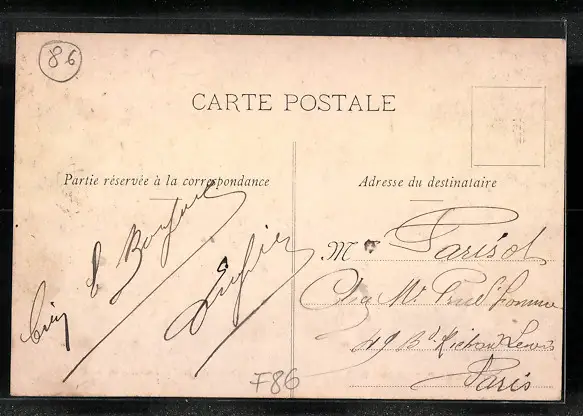 86
CARTE POSTALE
Partie réservée à la correspondance
Adresse du destinataire
Bien le Bonjour
M Parisot
Chez Mr Prud'homme
49 Bd Richard Lenoir
Paris
F86